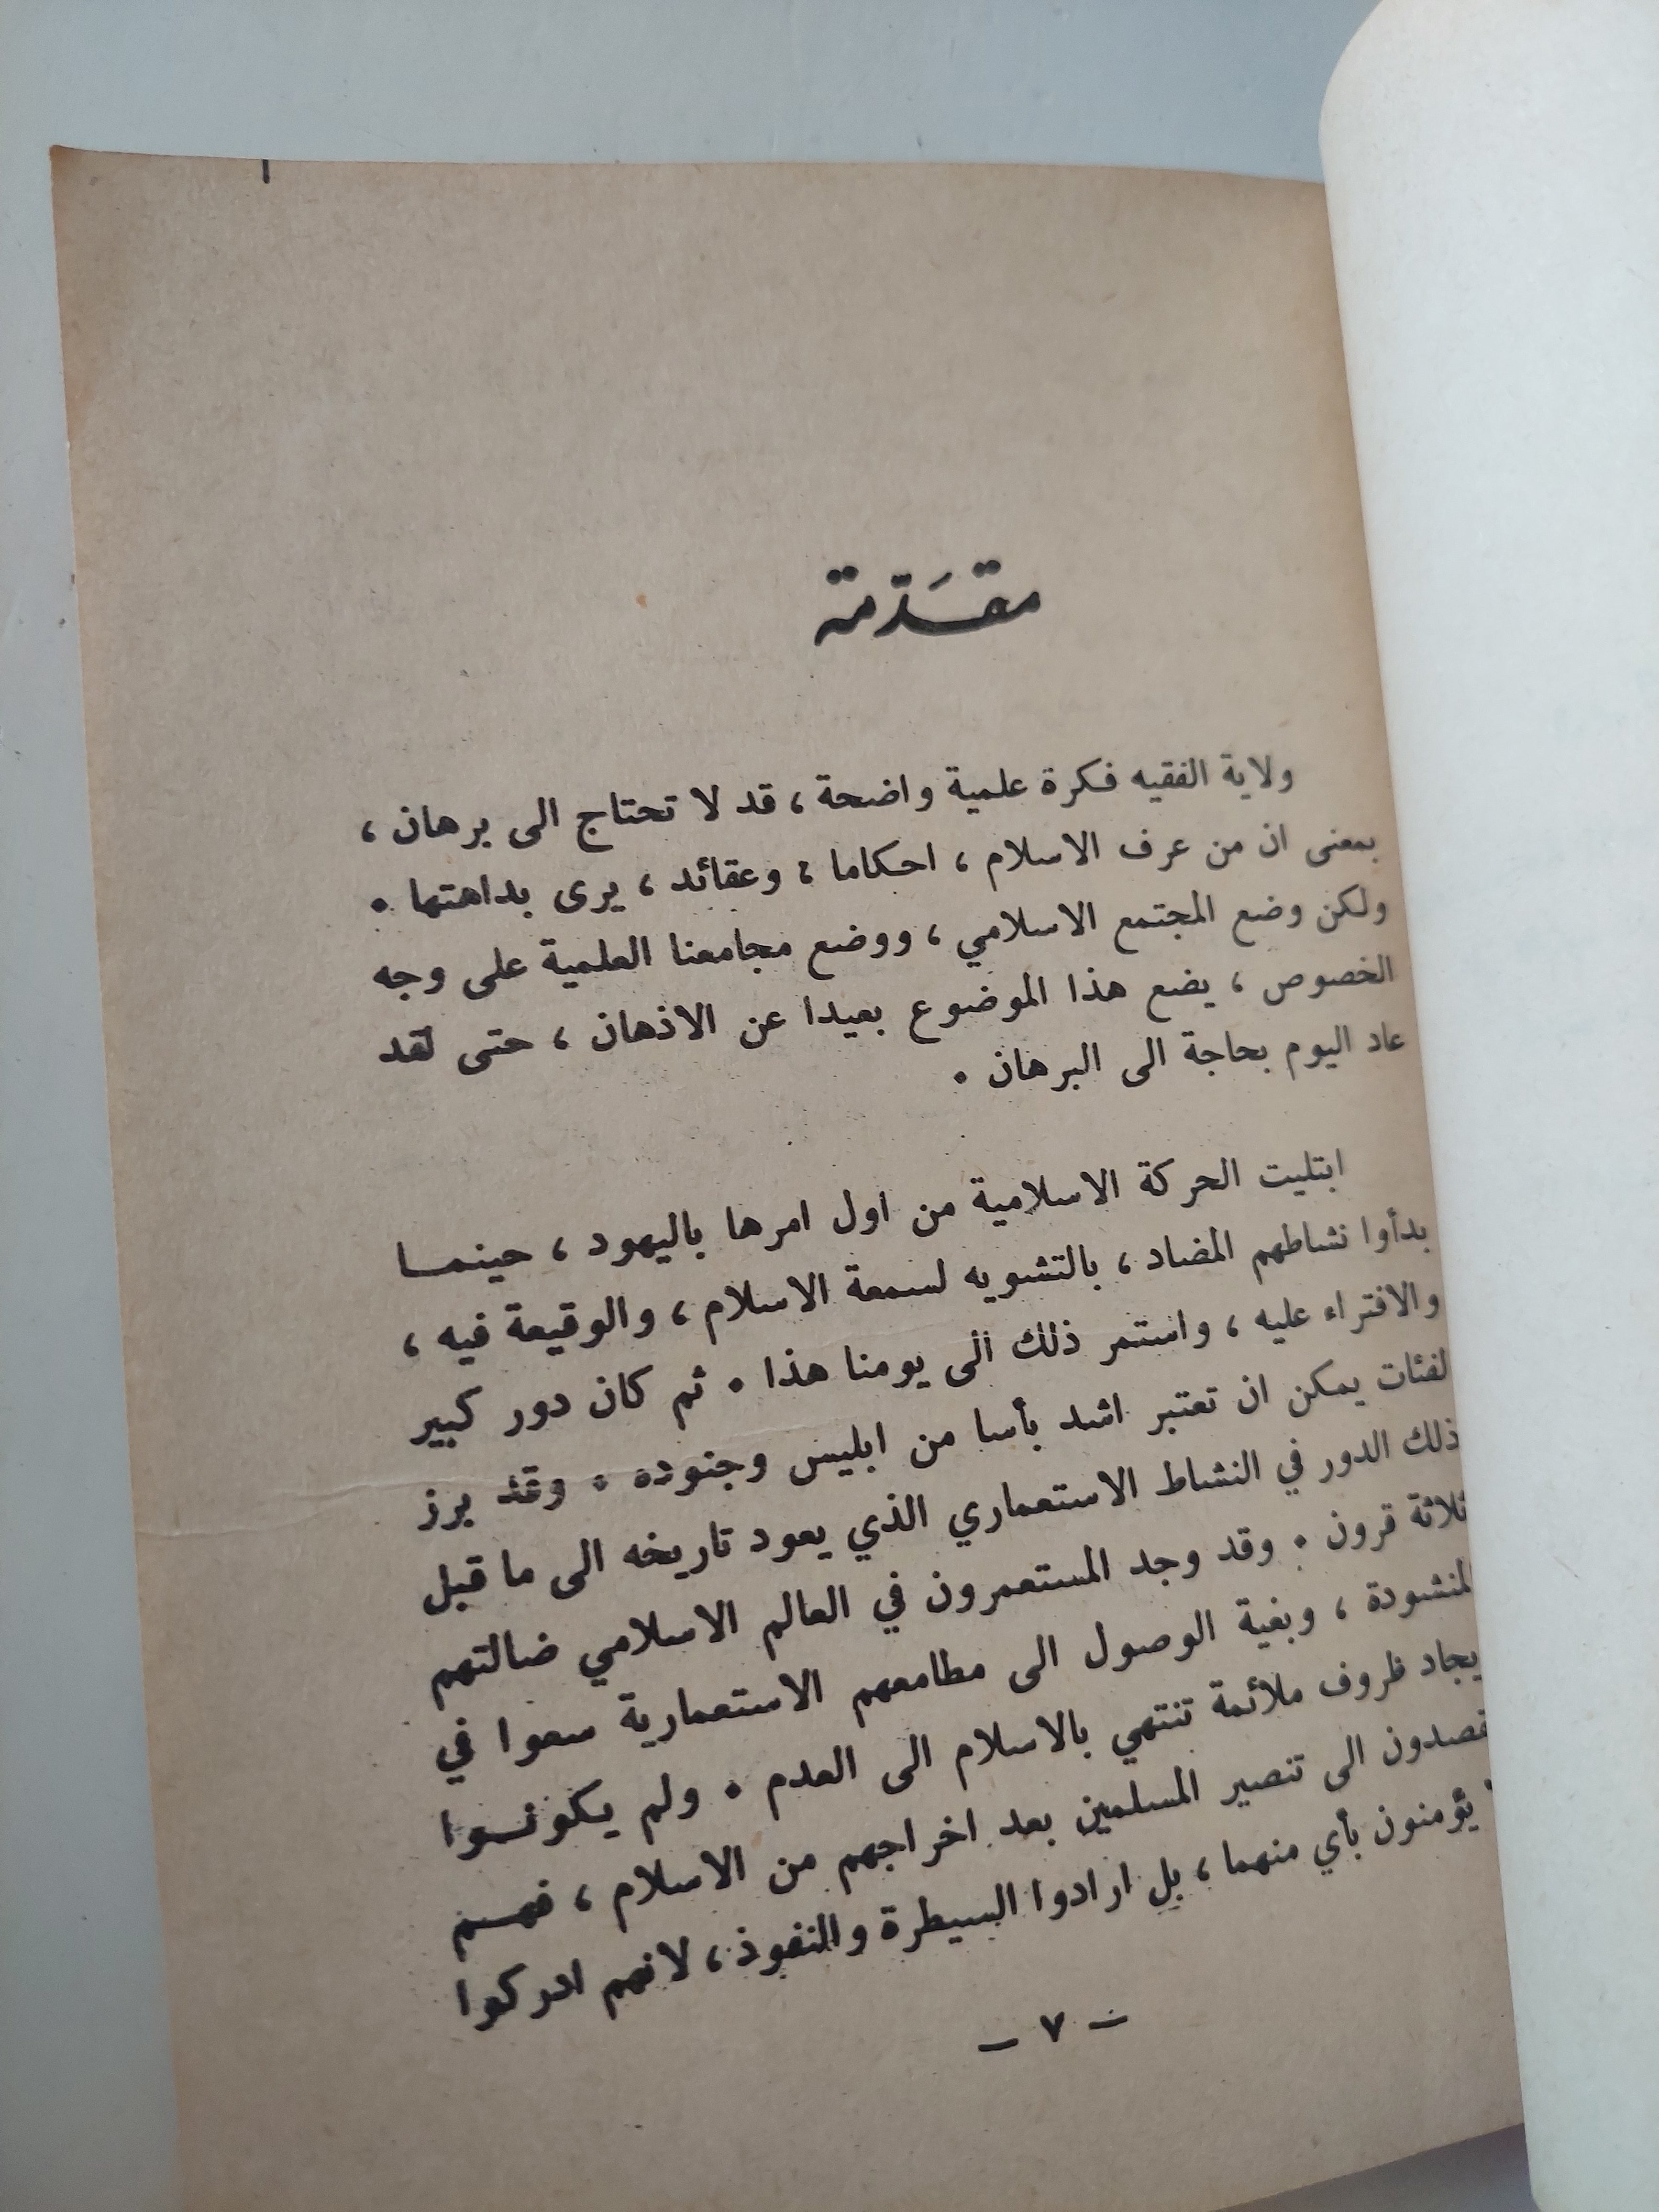 مقدّمة
ولاية الفقيه فكرة علمية واضحة ، قد لا تحتاج الى برهان ،
بمعنى ان من عرف الاسلام ، احكاما ، وعقائد ، يرى بداهتها .
ولكن وضع المجتمع الاسلامي ، ووضع مجامعنا العلمية على وجه
الخصوص ، يضع هذا الموضوع بعيدا عن الاذهان ، حتى لقد
عاد اليوم بحاجة الى البرهان .
ابتليت الحركة الاسلامية من اول امرها باليهود ، حينمـا
بدأوا نشاطهم المضاد ، بالتشويه لسمعة الاسلام ، والوقيعة فيه ،
والافتراء عليه ، واستمر ذلك الى يومنا هذا . ثم كان دور كبير
لفئات يمكن ان تعتبر اشد بأسا من ابليس وجنوده . وقد برز
ذلك الدور في النشاط الاستعماري الذي يعود تاريخه الى ما قبل
ثلاثة قرون . وقد وجد المستعمرون في العالم الاسلامي ضالتهم
لمنشودة ، وبغية الوصول الى مطامعهم الاستعمارية سعوا في
يجاد ظروف ملائمة تنتهي بالاسلام الى العدم . ولم يكونـوا
قصدون الى تنصير المسلمين بعد اخراجهم من الاسلام ، فهـم
يؤمنون بأي منهما ، بل ارادوا السيطرة والنفوذ ، لانهم ادركوا
– ٧ –